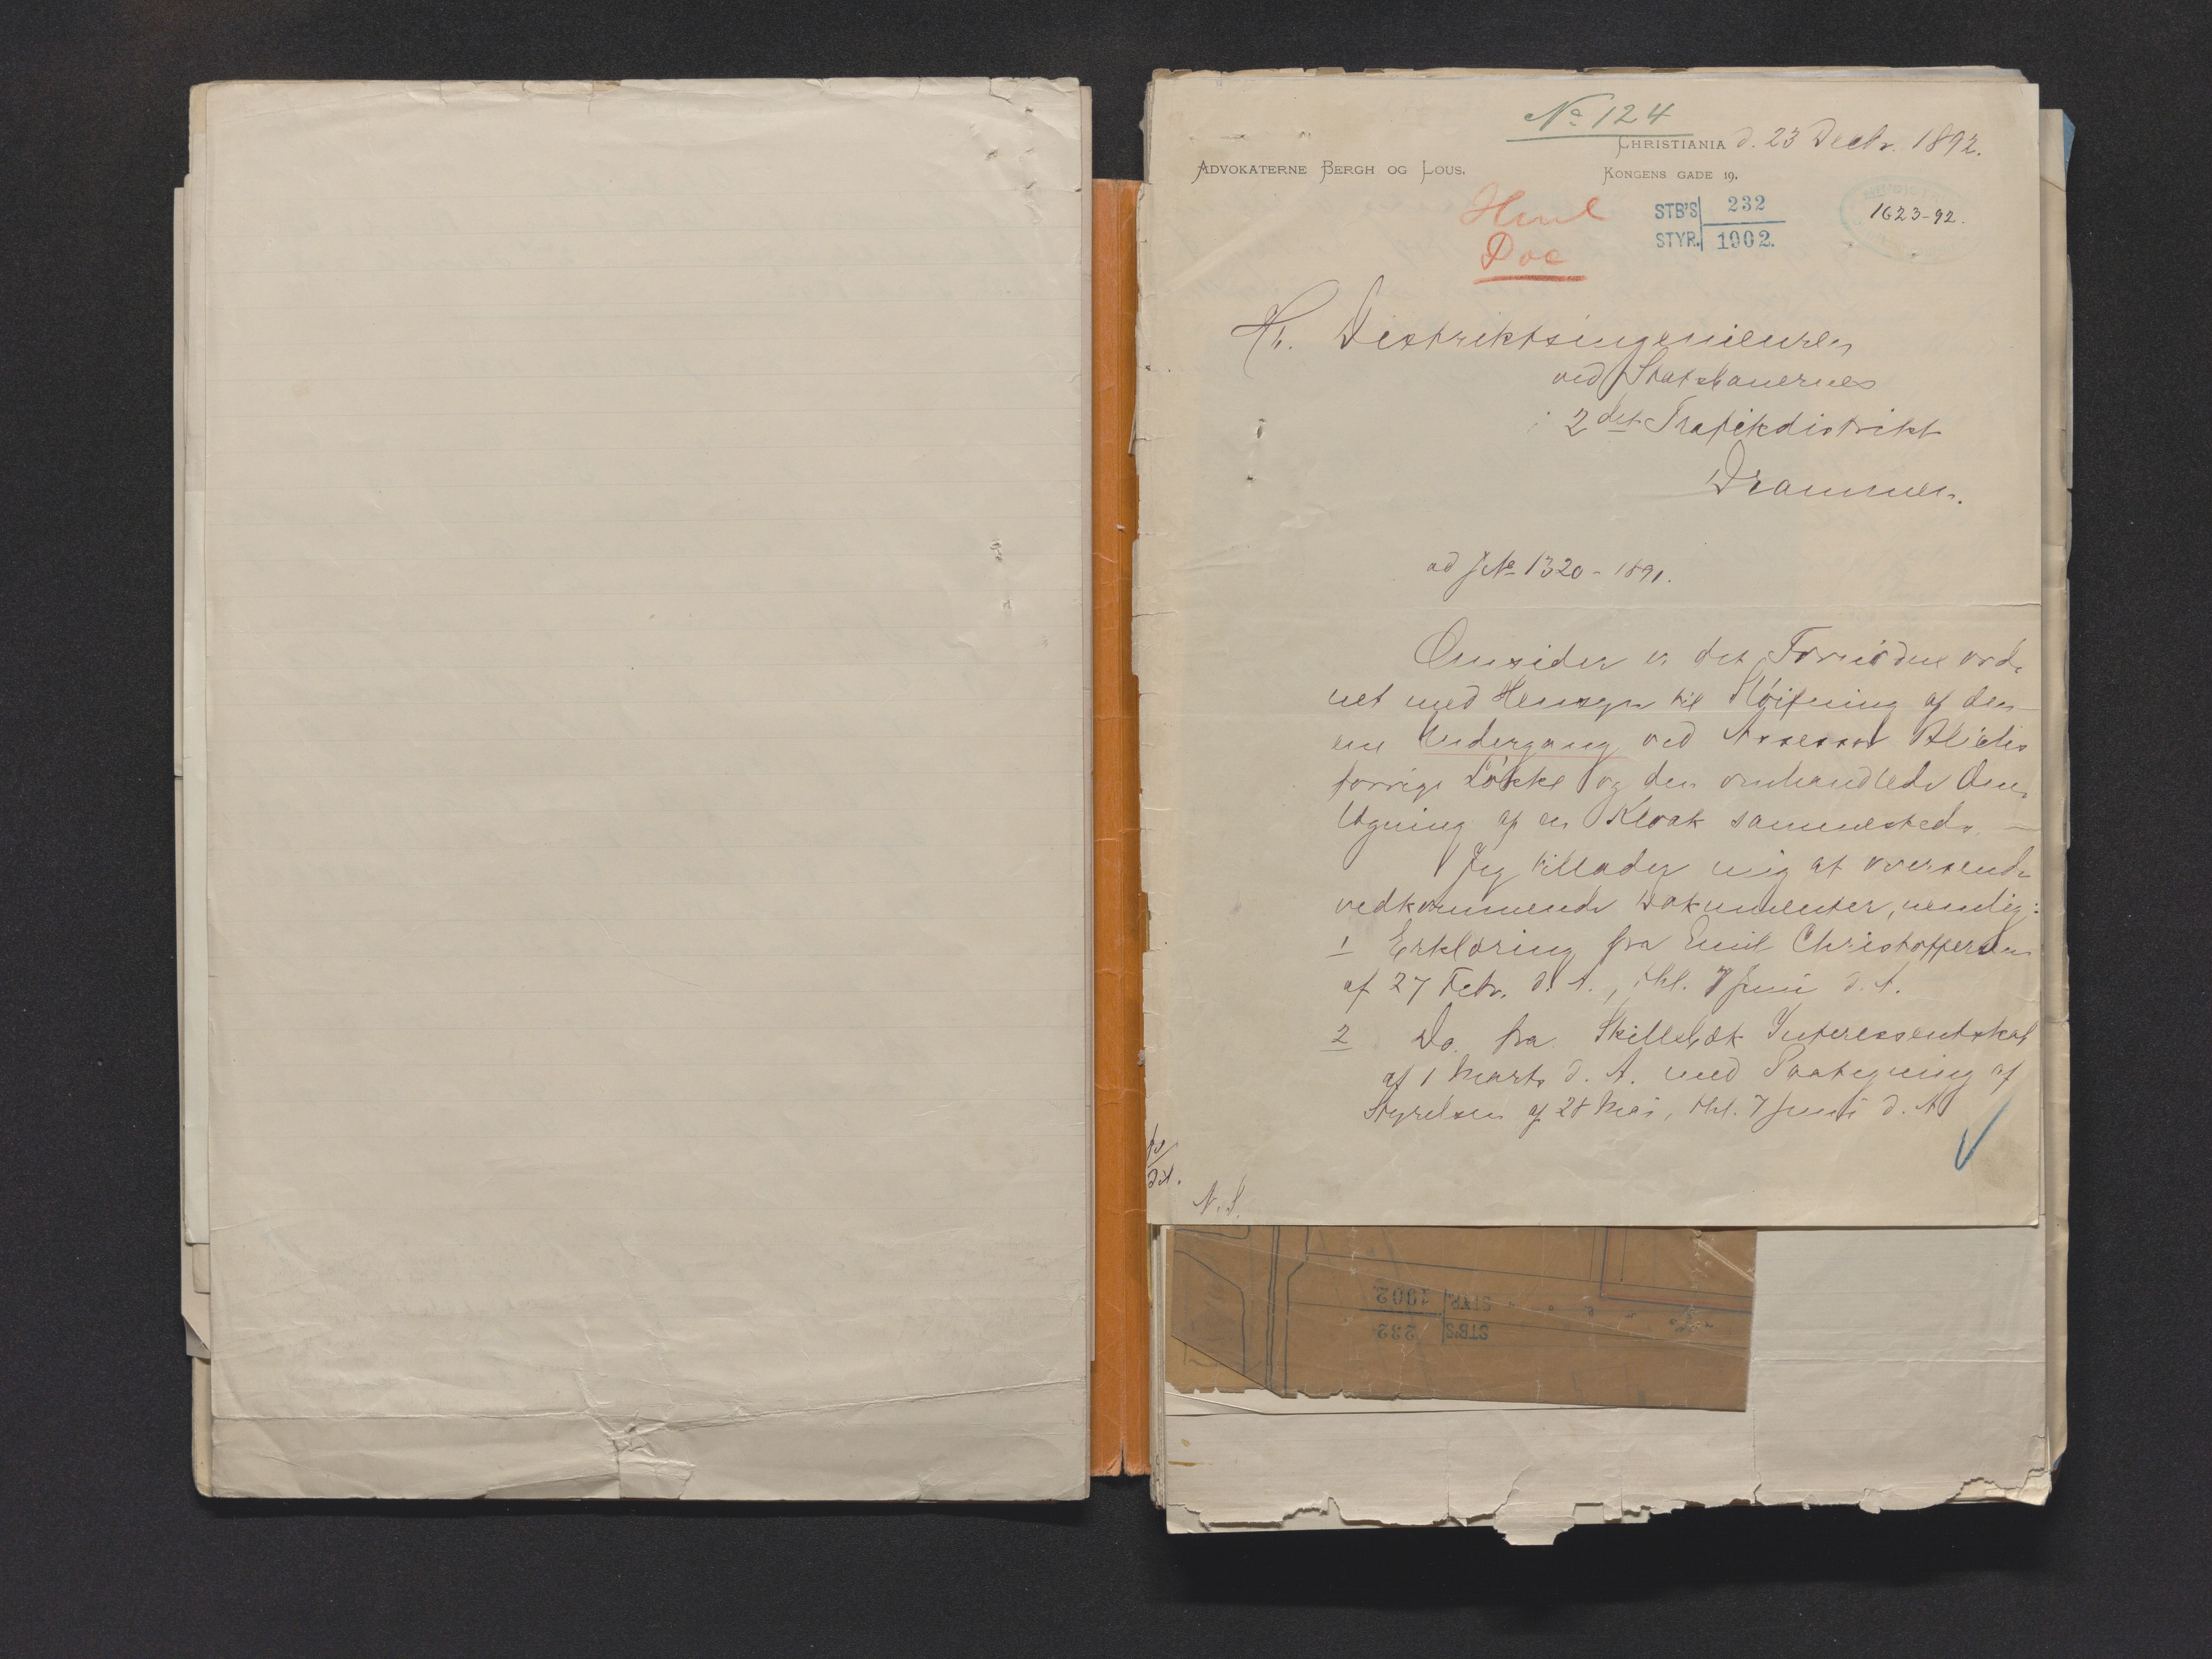 No 124
CHRISTIANIA d. 23 Decbr. 1892.
ADVOKATERNE BERGH OG LOUS.
KONGENS GADE 19.
STB'S 232
STYR. 1902.
1623-92.
Doc
Hr. Distriktsingeniøren
ved Statsbanernes
2det Trafikdistrikt
Drammen.
ad JNo 1320-1891.
Omsider er det Fornødne ord-
net med Hensyn til Sløifning af den
ene Undergang ved Assessor
forrige Løkke og den omhandlede Om-
lægning af en Kloak sammesteds. —
Jeg tillader mig at oversende
vedkommende Dokumenter, nemlig:
1 Erklæring fra Emil Christoffersen
af 27 Febr. d. A., thl. 7 Juni d. A.
2 Do. fra Skillebæk Interessentskab
af 1 Marts d. A. med Paategning af
Styrelsen af 28 Mai, thl. 7 Juni d. A
N.S.
STB'S 232
STYR. 1902